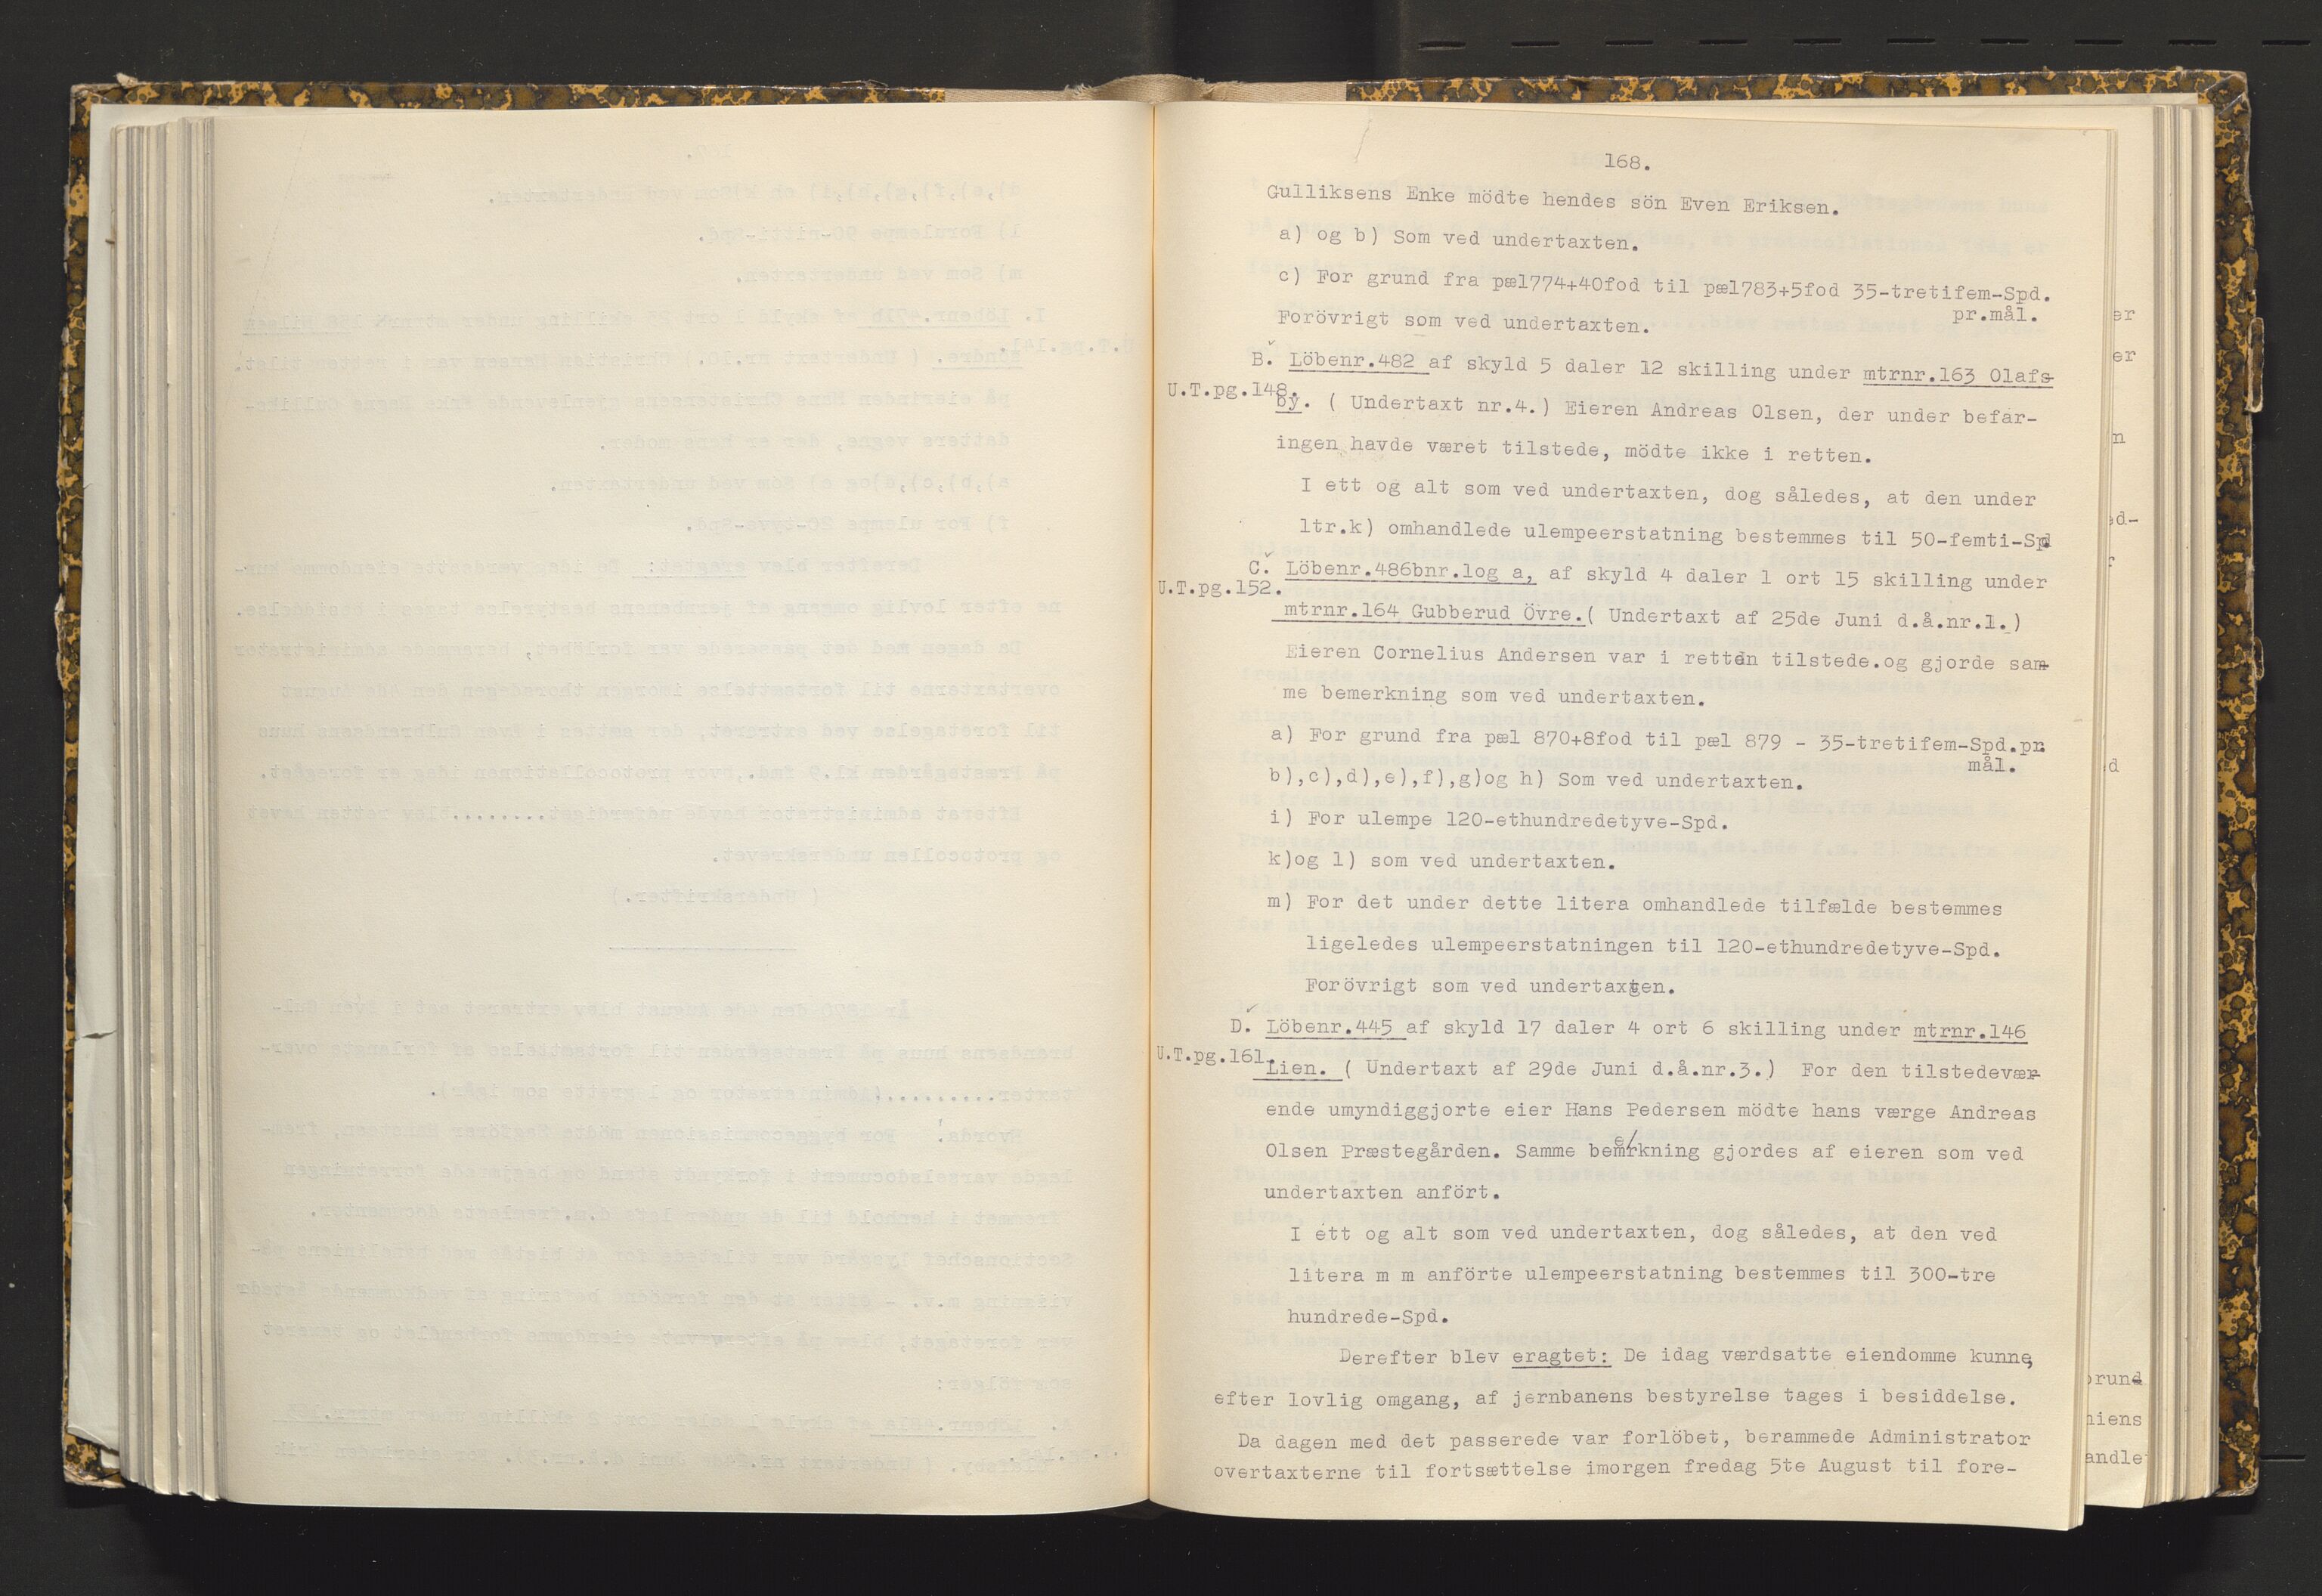 168.
Gulliksens Enke mödte hendes sön Even Eriksen.
a) og b) Som ved undertaxten.
c) For grund fra pæl774+40fod til pæl783+5fod 35-tretifem-Spd.
pr.mål.
Forövrigt som ved undertaxten.
B. Löbenr.482 af skyld 5 daler 12 skilling under mtrnr.163 Olafs-
U.T.pg.148.
by. ( Undertaxt nr.4.) Eieren Andreas Olsen, der under befar-
ingen havde været tilstede, mödte ikke i retten.
I ett og alt som ved undertaxten, dog således, at den under
ltr.k) omhandlede ulempeerstatning bestemmes til 50-femti-Spd
C. Löbenr.486bnr.1og a, af skyld 4 daler 1 ort 15 skilling under
U.T.pg.152.
mtrnr.164 Gubberud Övre.( Undertaxt af 25de Juni d.å.nr.1.)
Eieren Cornelius Andersen var i retten tilstede.og gjorde sam-
me bemerkning som ved undertaxten.
a) For grund fra pæl 870+8fod til pæl 879 - 35-tretifem-Spd.pr.
mål.
b),c),d),e),f),g)og h) Som ved undertaxten.
i) For ulempe 120-ethundredetyve-Spd.
k)og l) som ved undertaxten.
m) For det under dette litera omhandlede tilfælde bestemmes
ligeledes ulempeerstatningen til 120-ethundredetyve-Spd.
Forövrigt som ved undertaxten.
D. Löbenr.445 af skyld 17 daler 4 ort 6 skilling under mtrnr.146
U.T.pg.161.
Lien. ( Undertaxt af 29de Juni d.å.nr.3.) For den tilstedevær-
ende umyndiggjorte eier Hans Pedersen mödte hans værge Andreas
Olsen Præstegården. Samme bemerkning gjordes af eieren som ved
undertaxten anfört.
I ett og alt som ved undertaxten, dog således, at den ved
litera m m anförte ulempeerstatning bestemmes til 300-tre
hundrede-Spd.
Derefter blev eragtet: De idag værdsatte eiendomme kunne,
efter lovlig omgang, af jernbanens bestyrelse tages i besiddelse.
Da dagen med det passerede var forlöbet, berammede Administrator
overtaxterne til fortsættelse imorgen fredag 5te August til fore-